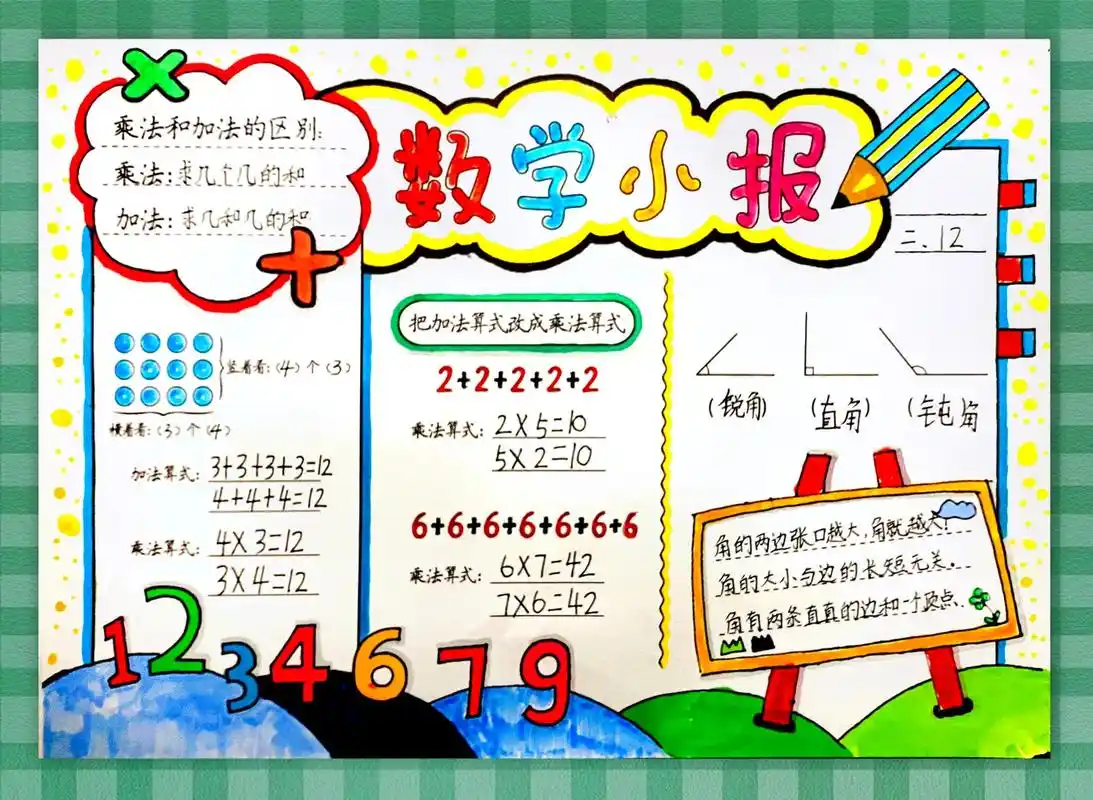 乘法和加法的区别:
乘法:求几个几的和
加法:求几和几的和
数学小报
三.12
竖着看:(4)个(3)
横着看:(3)个(4)
加法算式:3+3+3+3=12
4+4+4=12
乘法算式:4×3=12
3×4=12
把加法算式改成乘法算式
2+2+2+2+2
乘法算式:2×5=10
5×2=10
6+6+6+6+6+6+6
乘法算式:6×7=42
7×6=42
(锐角) (直角) (钝角)
角的两边张口越大,角就越大!
角的大小与边的长短无关..
角有两条直直的边和一个顶点.
1 2 3 4 6 7 9